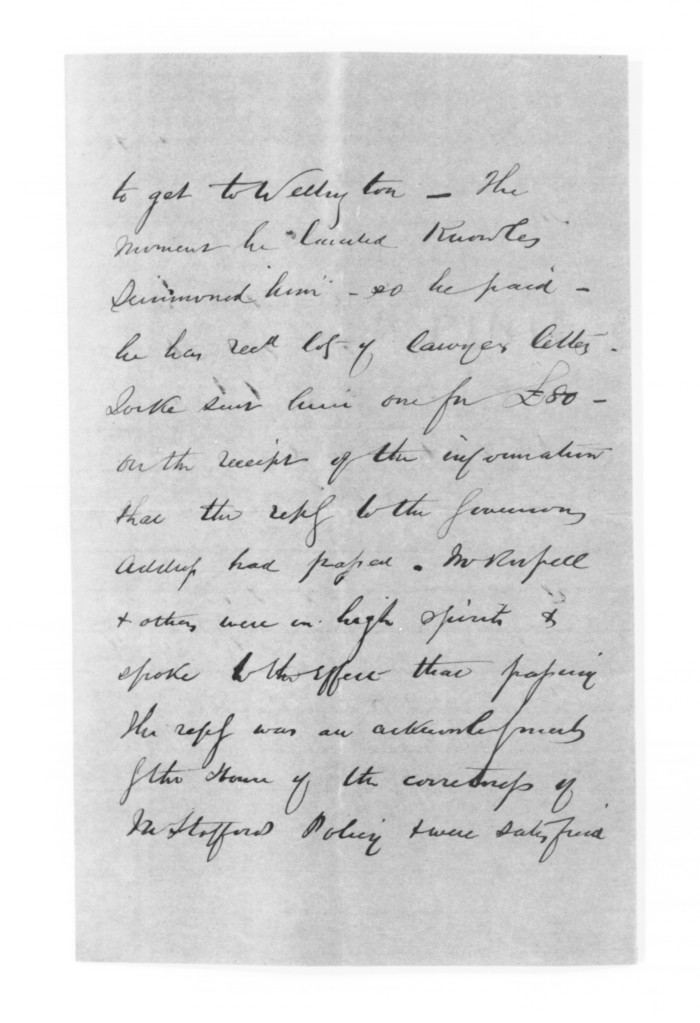 to get to Wellington — The
moment he landed Knowles
Summoned him — so he paid —
he has recd lots of lawyers letters.
Locke sent him one for £80 —
on the receipt of the information
that the reply to the Governors
Address had passed. Mr Russell
& others were in high spirits &
spoke to the effect that passing
the reply was an acknowledgment
of the House of the correctness of
Mr Staffords Policy & were satisfied